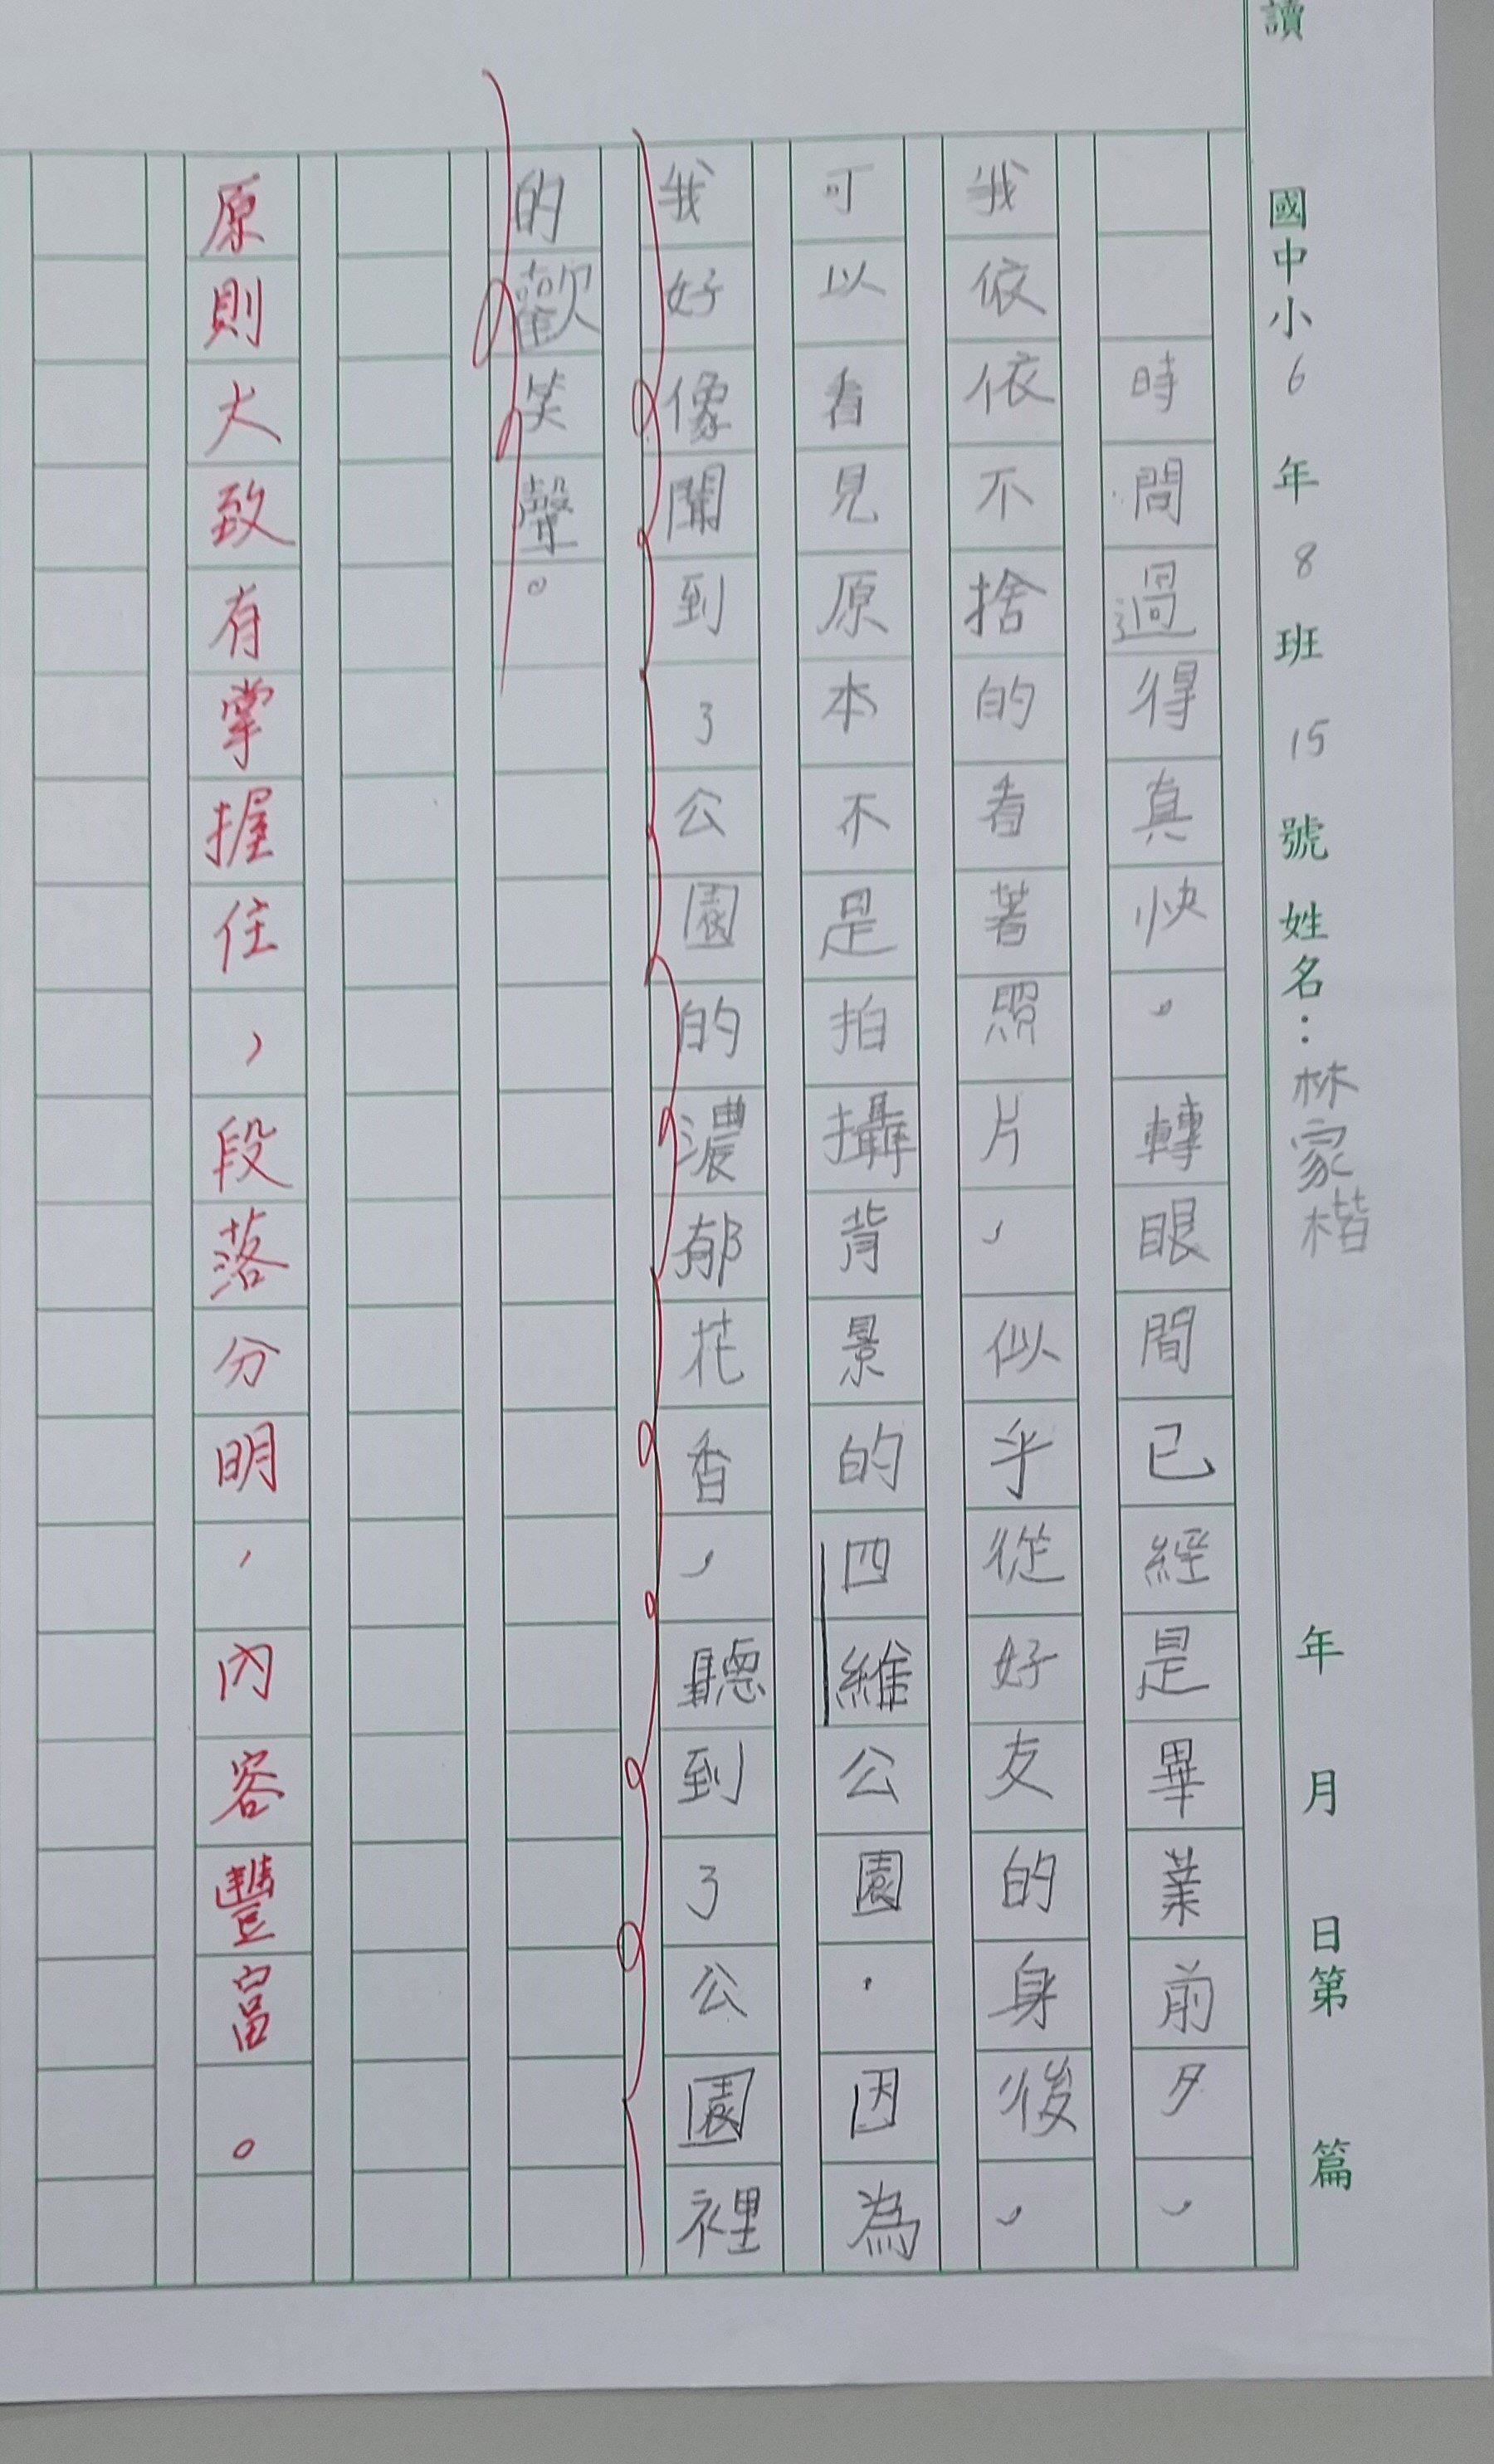 讀　國中小6年8班15號姓名：林家楷　年月日第篇
時間過得真快。轉眼間已經是畢業前夕，
我依依不捨的看著照片，似乎從好友的身後，
可以看見原本不是拍攝背景的四維公園．因為
我好像聞到了公園的濃郁花香，聽到了公園裡
的歡笑聲。
原則大致有掌握住，段落分明，內容豐富。